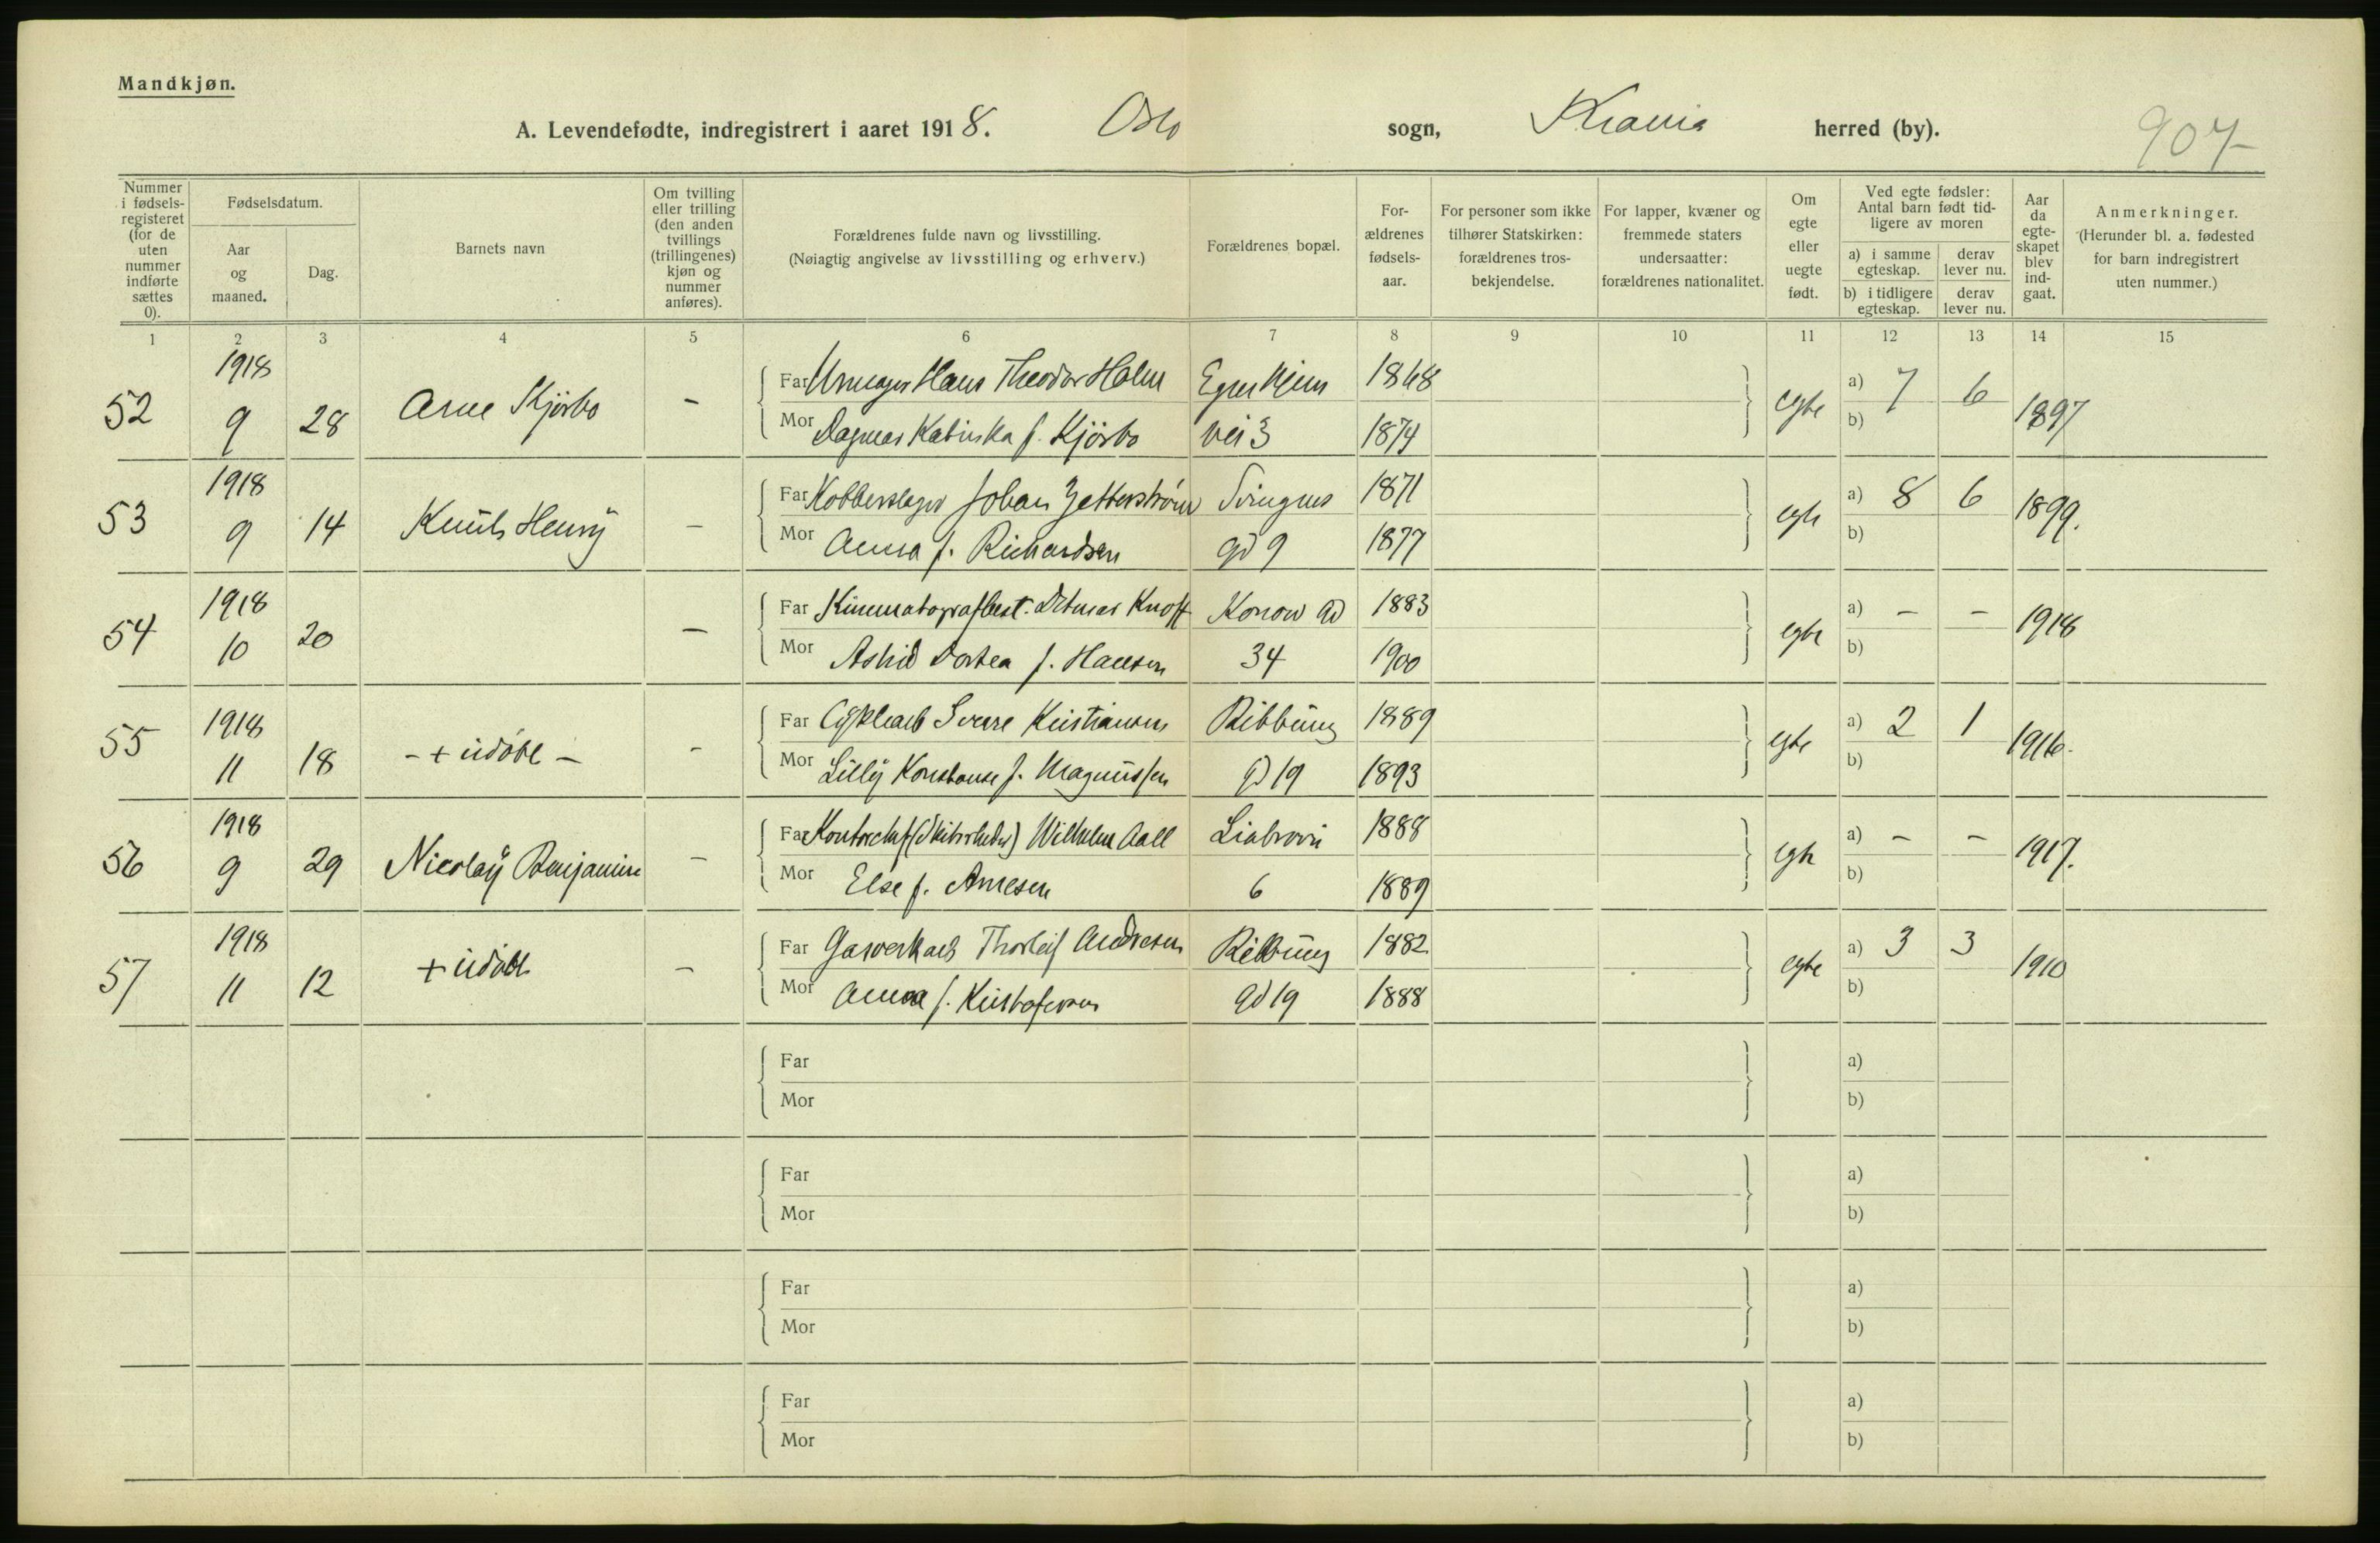 Mandkjøn.
A. Levendefødte, indregistrert i aaret 1918. Oslo sogn, Krania herred (by).
907
Nummer i fødsels-registeret (for de uten nummer indførte sættes 0).
Fødselsdatum.
Aar og maaned.
Dag.
Barnets navn
Om tvilling eller trilling (den anden tvillings (trillingenes) kjøn og nummer anføres).
Forældrenes fulde navn og livsstilling.
(Nøiagtig angivelse av livsstilling og erhverv.)
Forældrenes bopæl.
For-ældrenes fødsels-aar.
For personer som ikke tilhører Statskirken: forældrenes tros-bekjendelse.
For lapper, kvæner og fremmede staters undersaatter: forældrenes nationalitet.
Om egte eller uegte født.
Ved egte fødsler: Antal barn født tid-ligere av moren
a) i samme egteskap.
derav lever nu.
b) i tidligere egteskap.
derav lever nu.
Aar da egte-skapet blev ind-gaat.
Anmerkninger.
(Herunder bl. a. fødested for barn indregistrert uten nummer.)
1 2 3 4 5 6 7 8 9 10 11 12 13 14 15
52 1918 9 28 Arne Kjörbo -
Far Urmager Hans Theodor Holm Egerhjem 1868
Mor Dagmar Katinka f. Kjörbo vei 3 1874
egte a) 7 6 b) 1897
53 1918 9 14 Knut Henry -
Far Kobberslager Johan Zetterström Svingens 1871
Mor Anna f. Richardsen gd 9 1877
egte a) 8 6 b) 1899.
54 1918 10 20 -
Far Kinematografbest. Ditmar Knoff Konow gd 1883
Mor Astrid Dortea f. Hansen 34 1900
egte a) - - b) 1918
55 1918 11 18 - + udöbt - -
Far Cyklearb Sverre Kristiansen Ribbung 1889
Mor Lilly Konstanse f. Magnussen gd 19 1893
egte a) 2 1 b) 1916.
56 1918 9 29 Nicolay Benjamin -
Far Kontorchef Wilhelm Aall Liabrovei 1888
Mor Else f. Arnesen 6 1889
egte a) - - b) 1917.
57 1918 11 12 + udöbt -
Far Gasverkarb Thorleif Andresen Ribbung 1882
Mor Anna f. Kristofersen gd 19 1888
egte a) 3 3 b) 1910
Far a)
Mor b)
Far a)
Mor b)
Far a)
Mor b)
Far a)
Mor b)